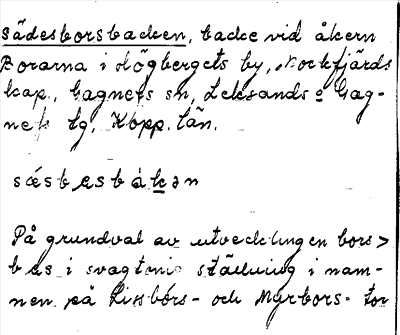 sädesborsbacken, backe vid åkern
Borarna i Högbergets by, Nockfjärds
kap., Gagnefs sn, Leksands o Gag-
nefs tg, Kopp. län.
sǽsbæsbàkən
På grundval av utvecklingen bors>
bæs i svagtonig ställning i nam-
nen på Lissbórs- och Myrbors- tor